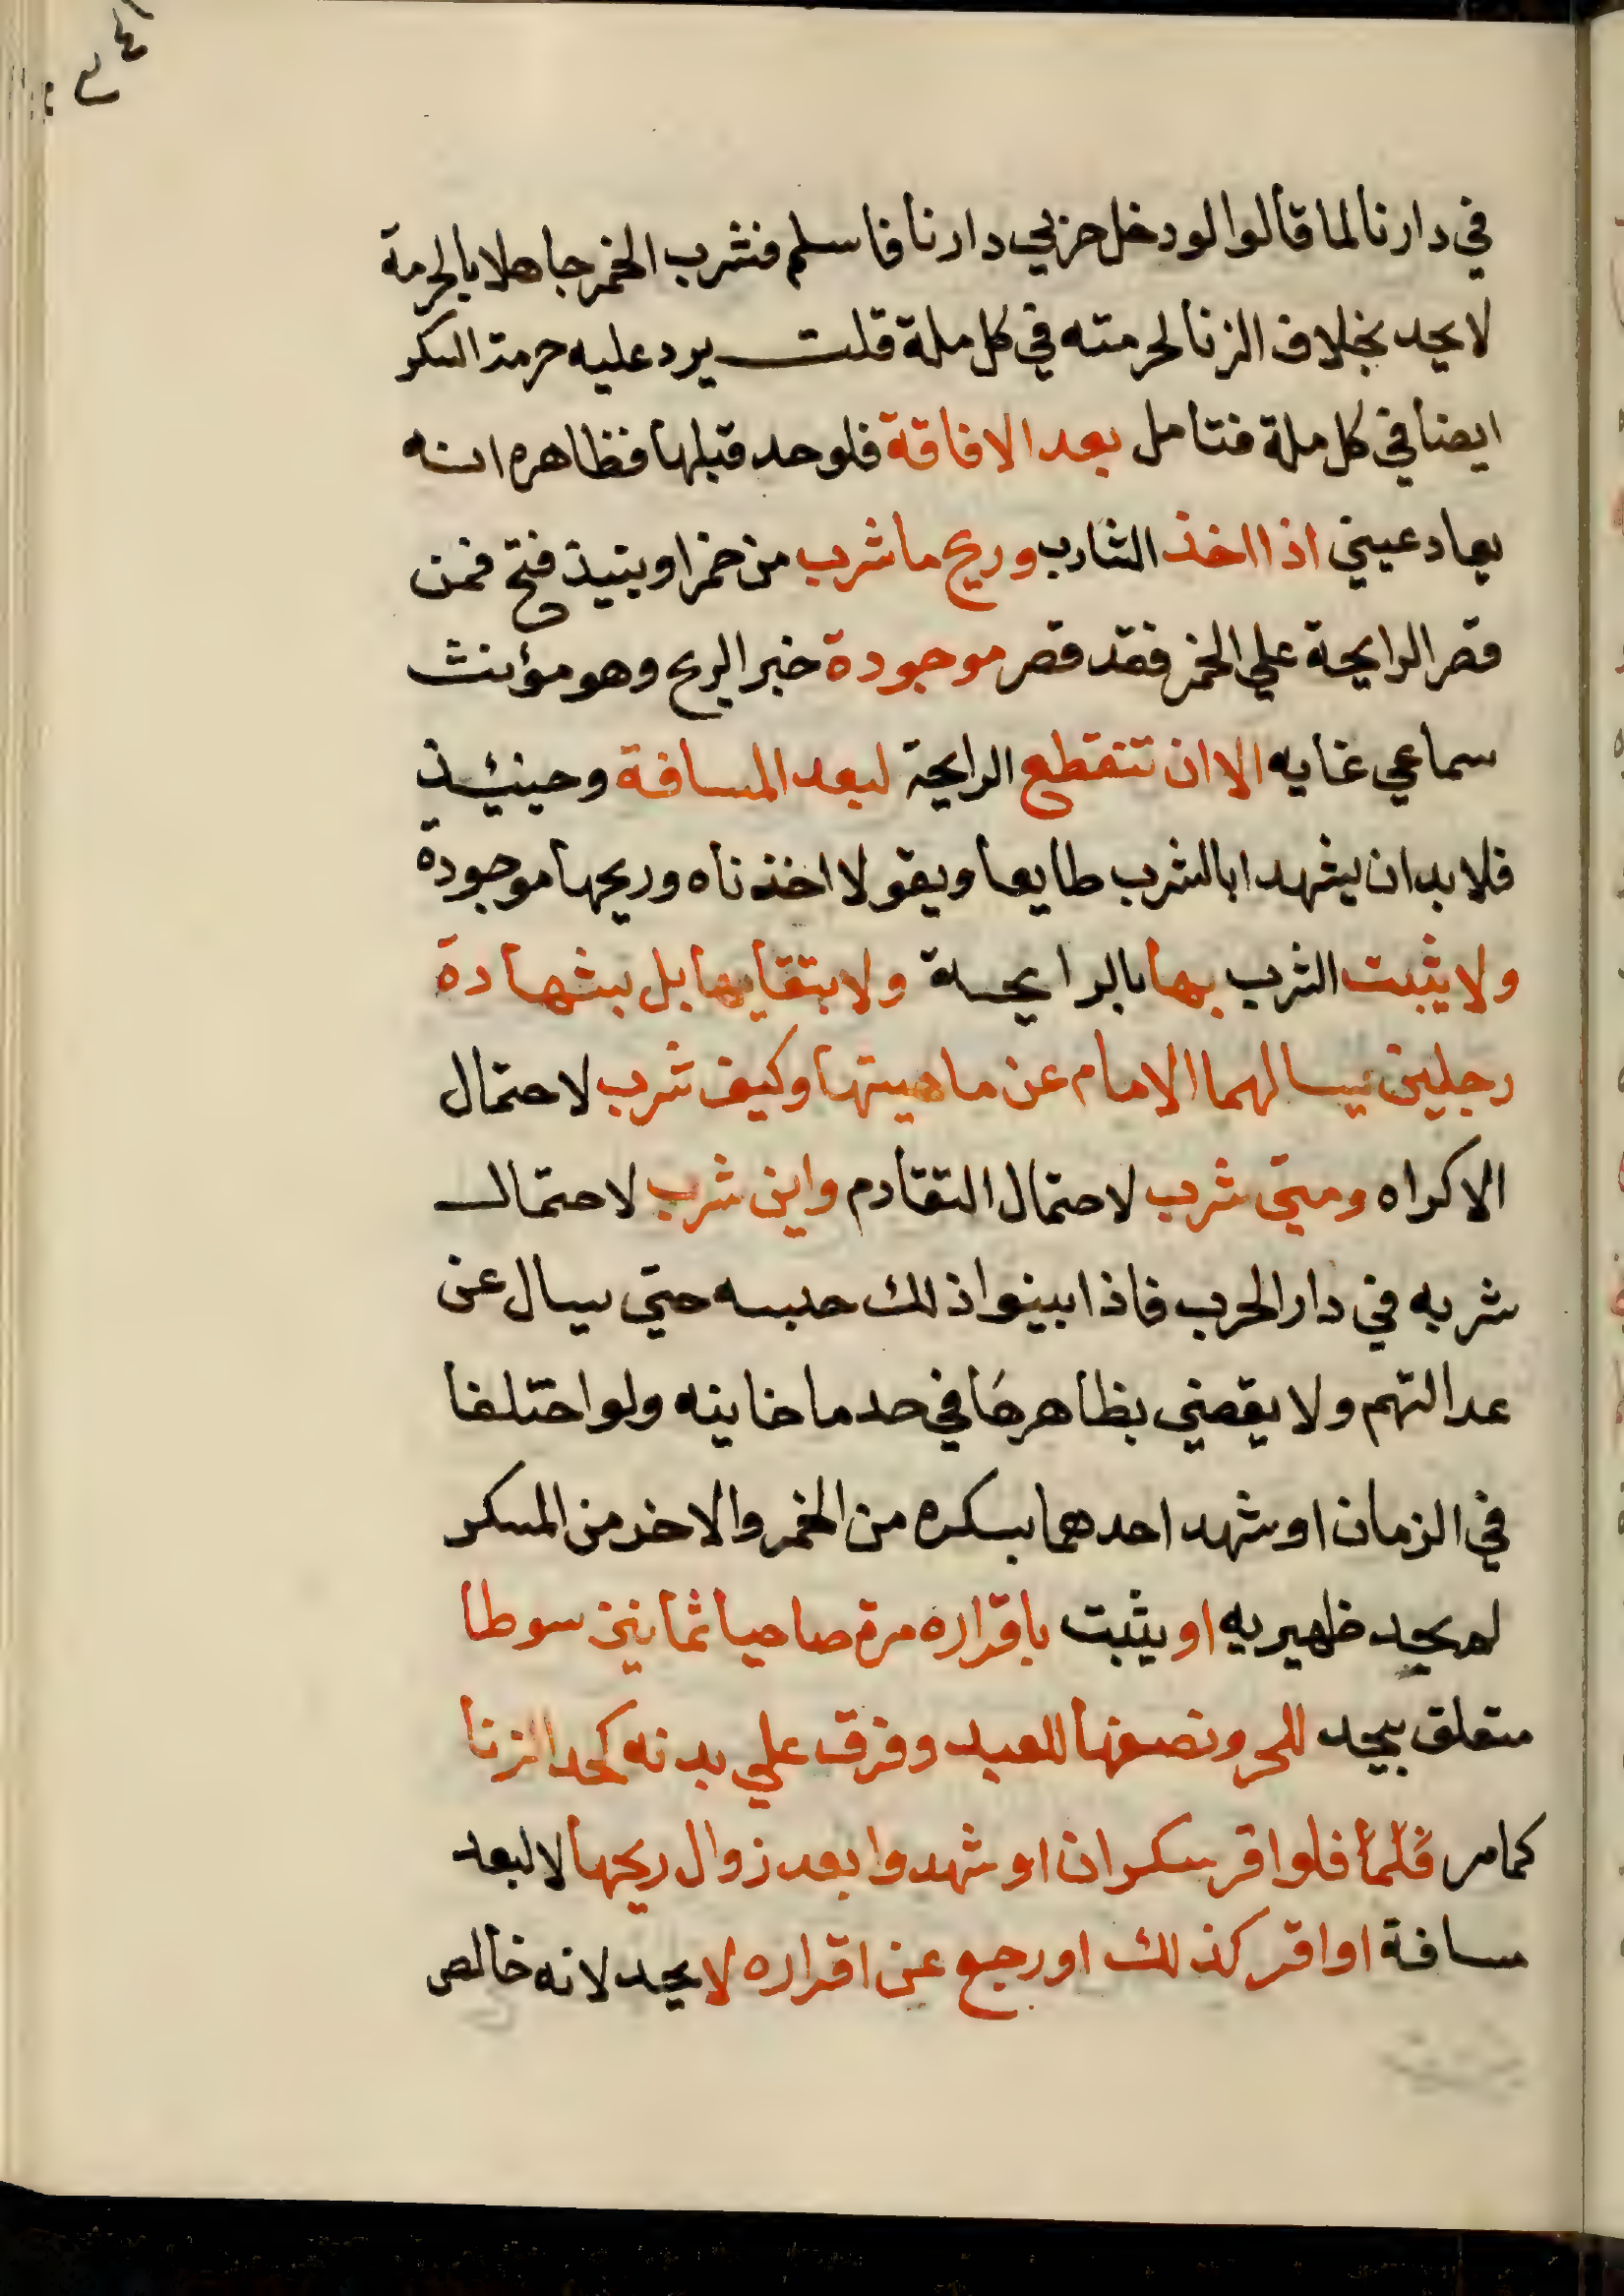 في دارنا لما قالوا لو دخل حربي دارنا فاسلم فشرب الخمر جاهلا بالحرمة
لا يحد بخلاف الزنا لحرمته في كل ملة قلت يرد عليه حرمة السكر
ايضا في كل ملة فتامل بعد الافاقة فلو حد قبلها فظاهره انه
يعاد عيني اذا اخذ الشارب وريح ما شرب من خمر او نبيذ فتح فمن
قصر الرايحة علي الخمر فقد قصر موجودة خبر الريح وهو مؤنث
سماعي غايه الا ان تنقطع الرايحة لبعد المسافة وحينئذ
فلا بد ان يشهدا بالشرب طايعا ويقولا اخذناه وريحها موجودة
ولا يثبت الشرب بها بالرايحة ولا بتقايها بل بشهادة
رجلين يسالهما الامام عن ماهيتها وكيف شرب لاحتمال
الاكراه ومتي شرب لاحتمال التقادم واين شرب لاحتمال
شربه في دار الحرب فاذا بينوا ذلك حبسه حتي يسال عن
عدالتهم ولا يقضي بظاهرها في حد ما خانيه ولو اختلفا
في الزمان او شهد احدهما بسكره من الخمر والاخر من المسكر
لم يحد ظهيريه او يثبت باقراره مرة صاحيا ثمانين سوطا
متعلق بيحد للحر ونصفها للعبد وفرق علي بدنه كحد الزنا
كما مر فلما فلو اقر سكران او شهدوا بعد زوال ريحها لا لبعد
مسافة او اقر كذلك او رجع عن اقراره لا يحد لانه خالص